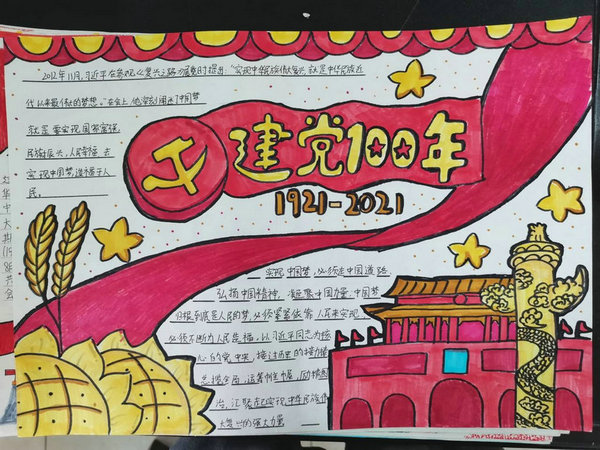 "2012年11月,习近平在参观《复兴之路》展览时提出:"实现中华民族伟大复兴,就是中华民族近
代以来最伟大的梦想。"在会上,他深刻阐述了中国梦
就是要实现国家富强
民族振兴,人民幸福,去
实现中国梦,造福于人
民。
建党100年
1921-2021
实现中国梦,必须走中国道路
弘扬中国精神,凝聚中国力量,中国梦
归根到底是人民的梦,必须紧紧依靠人民来实现
必须不断为人民造福,以习近平同志为核
心的党中央,接过历史的接力棒
总揽全局,运筹帷幄,励精图
治,汇聚起实现中华民族伟
大复兴的强大力量